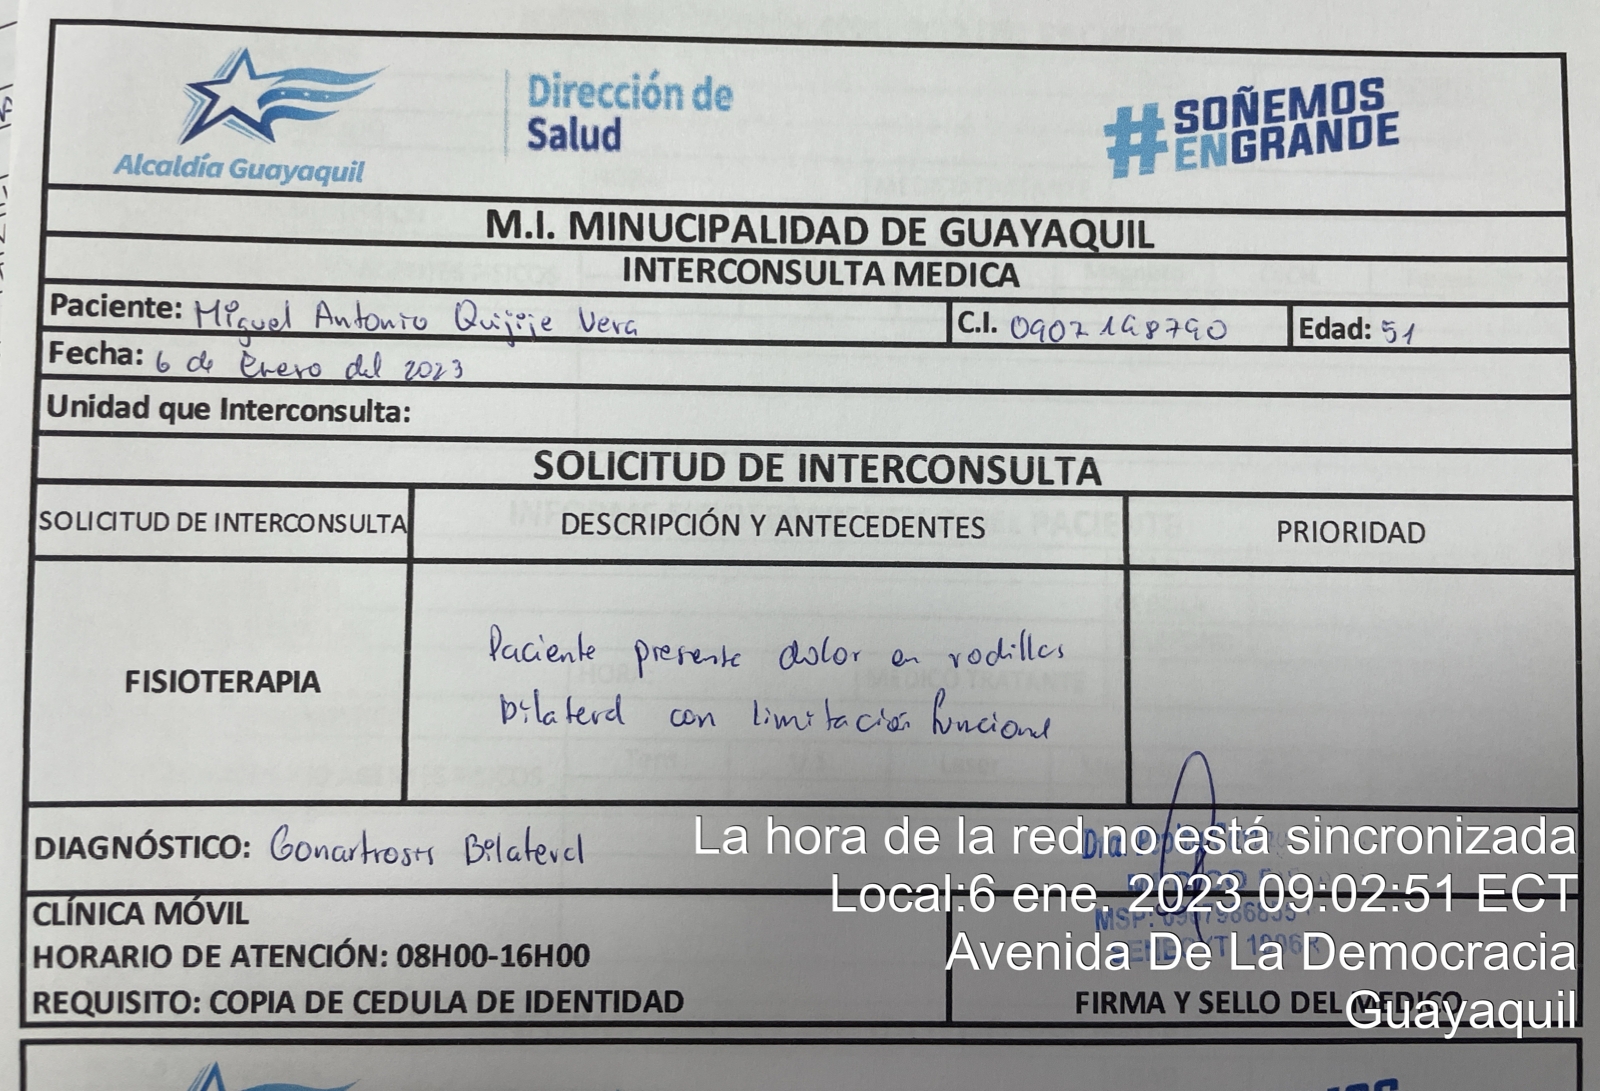 Alcaldía Guayaquil
Dirección de
Salud
#SOÑEMOS
ENGRANDE
M.I. MINUCIPALIDAD DE GUAYAQUIL
INTERCONSULTA MEDICA
Paciente: Miguel Antonio Quijije Vera C.I. 0907148790 Edad: 51
Fecha: 6 de Enero del 2023
Unidad que Interconsulta:
SOLICITUD DE INTERCONSULTA
SOLICITUD DE INTERCONSULTA DESCRIPCIÓN Y ANTECEDENTES PRIORIDAD
FISIOTERAPIA
Paciente presente dolor en rodillas
bilateral con limitación funcional
DIAGNÓSTICO: Gonartrosis Bilateral
CLÍNICA MÓVIL
HORARIO DE ATENCIÓN: 08H00-16H00
REQUISITO: COPIA DE CEDULA DE IDENTIDAD
Dra.
MSP:
FIRMA Y SELLO DEL MEDICO
La hora de la red no está sincronizada
Local:6 ene. 2023 09:02:51 ECT
Avenida De La Democracia
Guayaquil